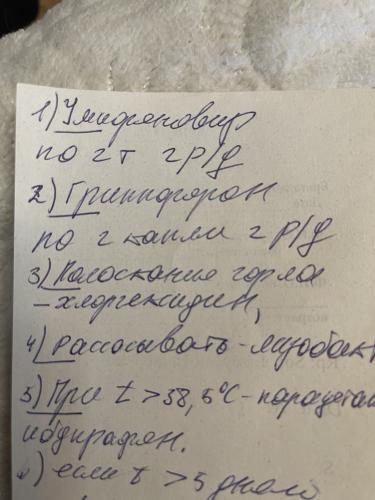 1) Умифеновир
по 2 т 2 р/д
2) Гриппферон
по 2 капли 2 р/д
3) Полоскание горла
– хлоргексидин,
4) Рассосывать – лизобакт
5) При t > 38,5°C – парацетам
если t > 5 дней